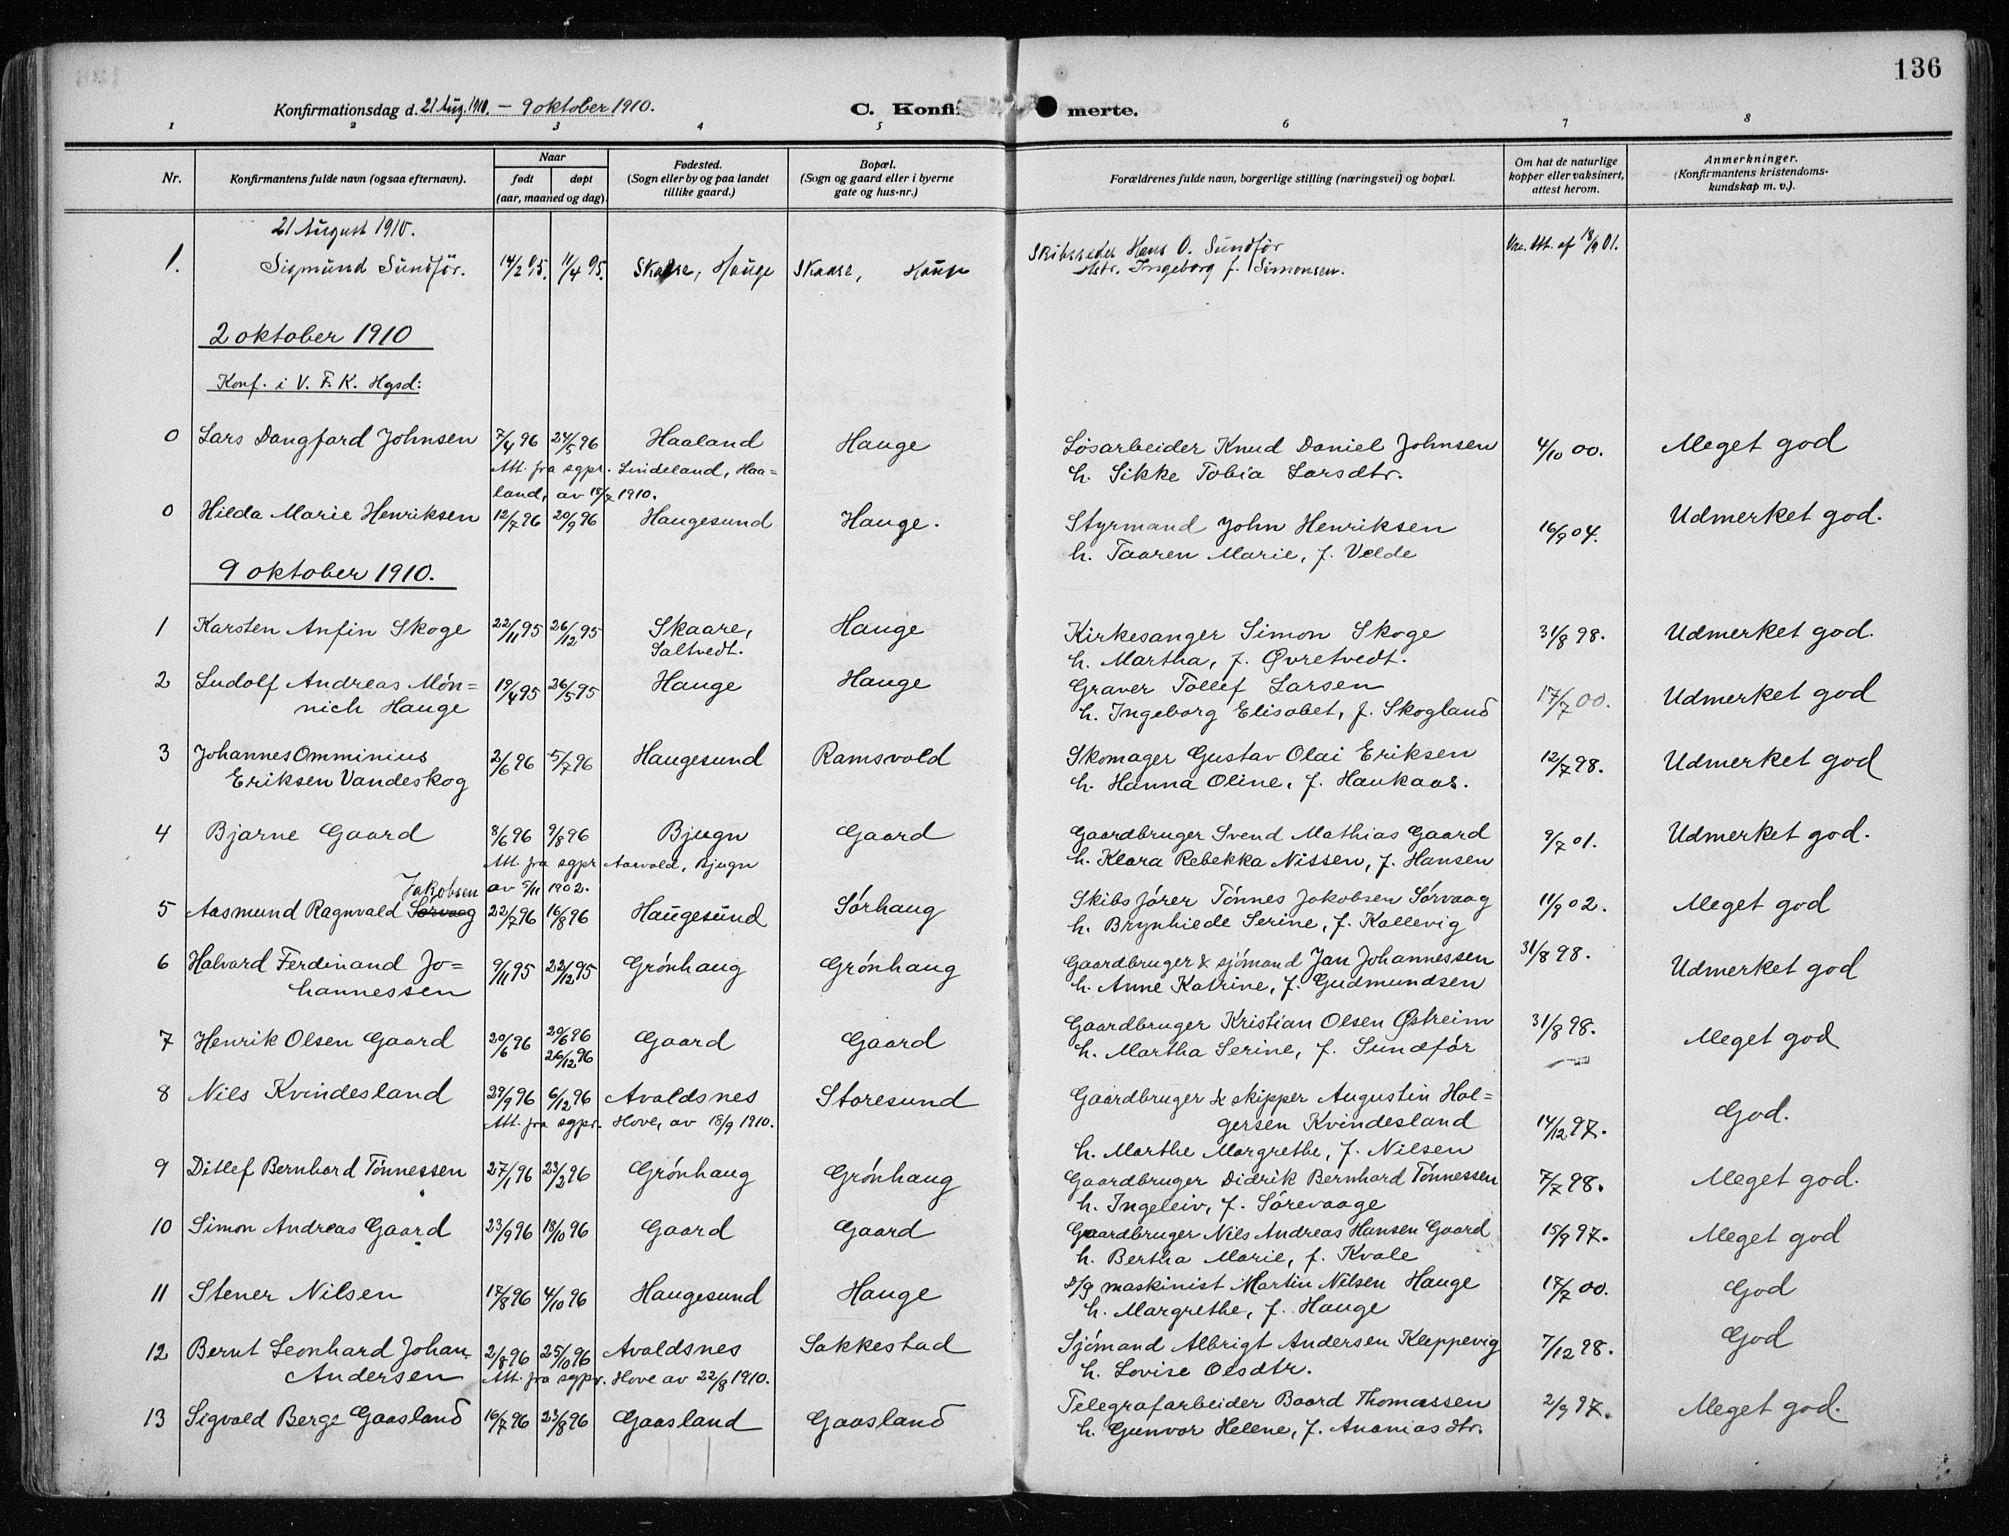 136
Konfirmationsdag d. 21 Aug. 1910. – 9 oktober 1910.
C. Konfi merte.
1 2 3 4 5 6 7 8
Nr.
Konfirmantens fulde navn (ogsaa efternavn).
Naar
født døpt
(aar, maaned og dag)
Fødested.
(Sogn eller by og paa landet
tillike gaard.)
Bopæl.
(Sogn og gaard eller i byerne
gate og hus-nr.)
Forældrenes fulde navn, borgerlige stilling (næringsvei) og bopæl.
Om hat de naturlige
kopper eller vaksinert,
attest herom.
Anmerkninger.
(Konfirmantens kristendoms-
kundskap m. v.).
21 August 1910.
1. Sigmund Sundför. 14/2 95. 11/4 95. Skaare, Hauge Skaare, Hauge Skibsreder Hans O. Sundför Vac. Att. af 18/9 01.
Hstr. Ingeborg f. Simonsen.
2 oktober 1910
Konf. i V. F. K. Hgsd:
0 Lars Dangfard Johnsen 7/4 96 24/5 96 Haaland Hauge Løsarbeider Knud Daniel Johnsen 4/10 00. Meget god
Att. fra sgpr. Lindeland, Haa= h. Sikke Tobia Larsdtr.
land, av 18/7 1910.
0 Hilda Marie Henriksen 12/7 96 20/9 96 Haugesund Hauge. Styrmand John Henriksen 16/9 04. Udmerket god.
h. Taaren Marie, f. Velde
9 oktober 1910.
1 Karsten Anfin Skoge 22/11 95 26/12 95 Skaare, Hauge Kirkesanger Simon Skoge 31/8 98. Udmerket god.
Saltvedt. h. Martha, f. Øvretvedt.
2 Ludolf Andreas Møn= 19/4 95 26/5 95 Hauge Hauge Graver Tollef Larsen 17/7 00. Udmerket god
nich Hauge h. Ingeborg Elisabet, f. Skogland
3 Johannes Omminius 2/6 96 5/7 96 Haugesund Ramsvold Skomager Gustav Olai Eriksen 12/7 98. Udmerket god
Eriksen Vandeskog h. Hanna Oline, f. Haukaas.
4 Bjarne Gaard 8/6 96 9/8 96 Bjugn Gaard Gaardbruger Svend Mathias Gaard 9/7 01. Udmerket god.
Att. fra sgpr Aarvold, Bjugn h. Klara Rebekka Nissen, f. Hansen
Jakobsen av 5/11 1902.
5 Aasmund Ragnvald Sørvaag 22/7 96 16/8 96 Haugesund Sørhaug Skibsfører Tønnes Jakobsen Sørvaag 11/9 02. Meget god
h. Brynhilde Serine, f. Kallevig
6 Halvard Ferdinand Jo= 9/11 95 22/12 95 Grønhaug Grønhaug Gaardbruger & sjömand Jan Johannessen 31/8 98. Udmerket god
hannessen h. Anne Katrine, f. Gudmundsen
7 Henrik Olsen Gaard 20/6 96 29/6 96 26/12 96 Gaard Gaard Gaardbruger Kristian Olsen Østreim 31/8 98. Meget god
h. Martha Serine, f. Sundför
8 Nils Kvindesland 29/9 96 6/12 96 Avaldsnes Storesund Gaardbruger & skipper Augustin Hol= God.
Att. fra sgpr. Hove, av 18/9 1910. gersen Kvindesland 14/12 97.
h. Marthe Margrethe, f. Nilsen
9 Ditlef Bernhard Tönnessen 27/1 96 23/2 96 Grønhaug Grønhaug Gaardbruger Didrik Bernhard Tönnessen 7/7 98. Meget god.
h. Ingeleiv, f. Sørevaage
10 Simon Andreas Gaard 23/9 96 18/10 96 Gaard Gaard Gaardbruger Nils Andreas Hansen Gaard 15/9 97. Meget god
h. Bertha Marie, f. Kvale
11 Stener Nilsen 17/8 96 4/10 96 Haugesund Hauge maskinist Martin Nilsen Hauge 17/7 00. God
h. Margrethe, f. Hauge
12 Bernt Leonhard Johan 2/8 96 25/10 96 Avaldsnes Sakkestad Sjömand Albrigt Andersen Kleppevig 7/12 98. God
Andersen Att. fra sgpr. Hove av 22/8 1910. h. Lovise Olsdtr.
13 Sigvald Berge Gaasland 16/7 96 23/8 96 Gaasland Gaasland Telegrafarbeider Baard Thomassen 2/9 97. Meget god.
h. Gunvor Helene, f. Ananiasdtr.